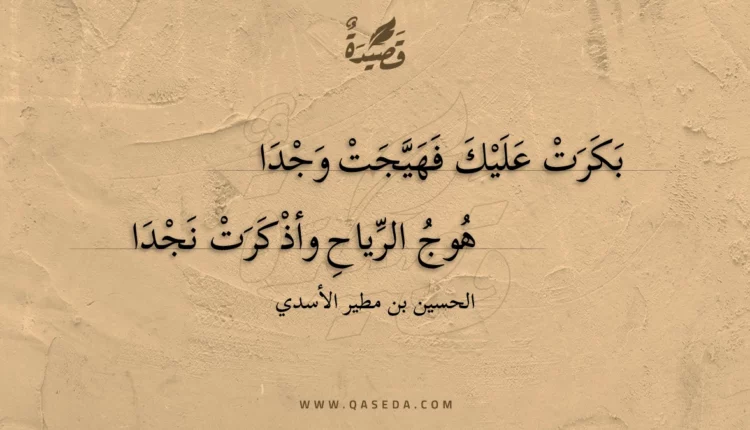 قَصِيدَةٌ
بَكَرَتْ عَلَيْكَ فَهَيَّجَتْ وَجْدَا
هُوجُ الرِّياحِ وأذْكَرَتْ نَجْدَا
الحسين بن مطير الأسدي
WWW.QASEDA.COM